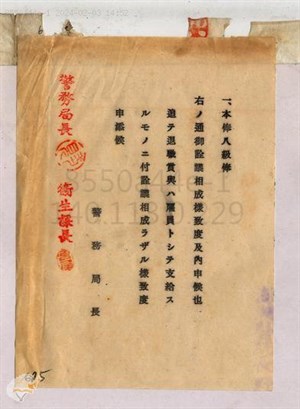 一、本俸八級俸
右ノ通御詮議相成樣致度及內申候也
追テ退職賞與ハ雇員トシテ支給ス
ルモノニ付詮議相成ラザル樣致度
申添候
警務局長
警務局長
衛生課長